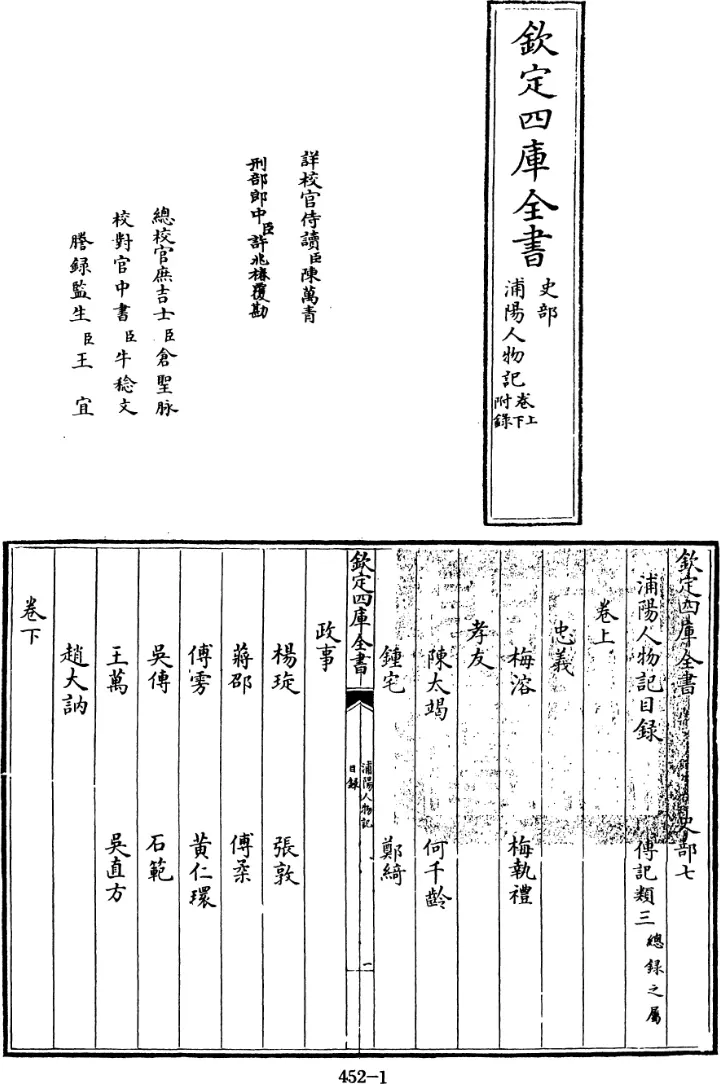 欽定四庫全書
史部
浦陽人物記
卷上
卷下
附錄
詳校官侍讀臣陳萬青
刑部郎中臣許兆椿覆勘
總校官庶吉士臣倉聖脉
校對官中書臣牛稔文
謄錄監生臣王宜
欽定四庫全書
史部七
浦陽人物記目録
傳記類三
總錄之屬
卷上
忠義
梅溶
梅執禮
孝友
陳太竭
何千齡
鍾宅
鄭綺
欽定四庫全書
浦陽人物記
目錄
一
政事
楊琁
張敦
蔣邵
傅柔
傅雱
黃仁環
吳傅
石範
王萬
吳直方
趙大訥
卷下
452-1